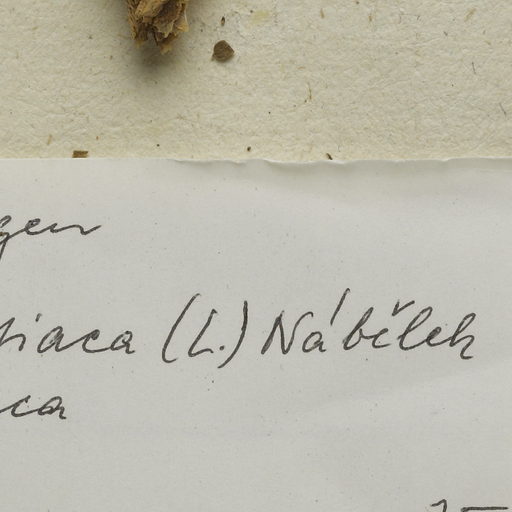 gen
tiaca (L.) Nábělek
ca
15